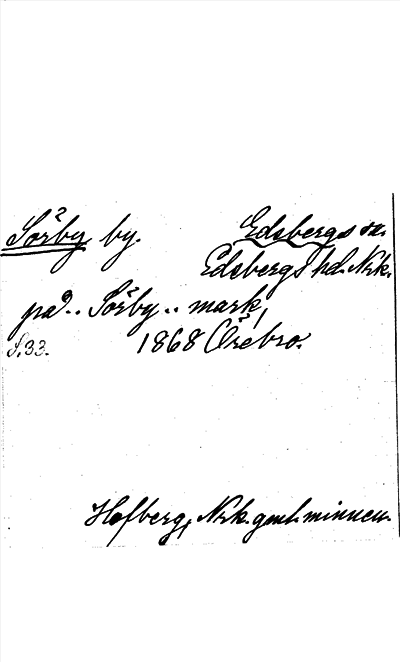 Sörby by. Edsbergs sn.
Edsbergs hd. Nrk.
på.. Sörby.. mark,
S.33. 1868 Örebro.
Hofberg, Nrk. gml. minnen.